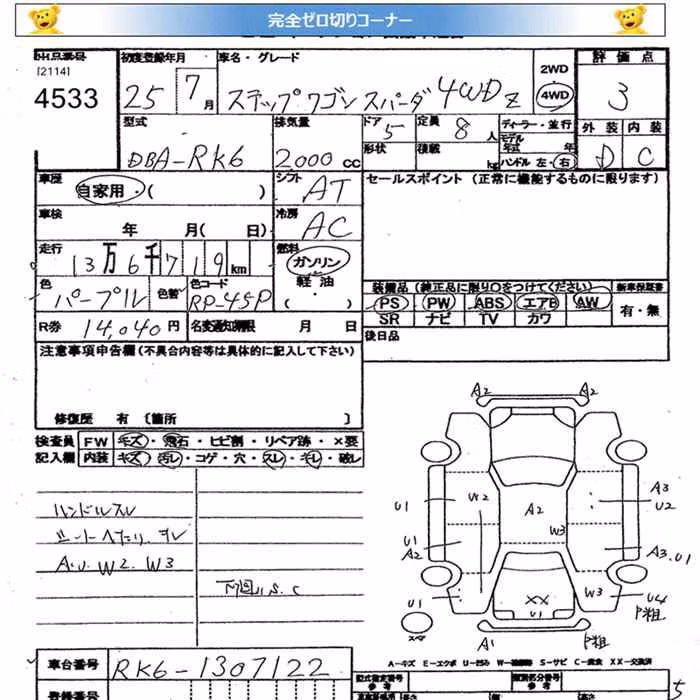 完全ゼロ切りコーナー
出品番号 [2114] 4533
初度登録年月 25 7月
車名・グレード ステップワゴン スパーダ 4WD Z
2WD 4WD
評価点 3
外装 内装
D C
型式 DBA-RK6
排気量 2000 cc
ドア 5 定員 8 人
形状 積載 kg
ディーラー・並行
モデル年式 年
ハンドル 左・右
車歴 自家用・( )
シフト AT
セールスポイント (正常に機能するものに限ります)
車検 年 月( 日)
冷房 AC
走行 13万6千719km
燃料 ガソリン 軽油 ( ・ )
色 パープル 色替 色コード RP-45P
装備品 (純正品に限り○をつけてください) 新車保証書
PS PW ABS エアB AW 有・無
SR ナビ TV カワ
R券 14,040円 名変通知期限 月 日
後日品
注意事項申告欄 (不具合内容等は具体的に記入して下さい)
修復歴 有 〔箇所 〕
検査員 FW キズ・飛石・ヒビ割・リペア跡・×要
記入欄 内装 キズ・汚レ・コゲ・穴・スレ・キレ・破レ
ハンドルスレ
シートヘタリ. スレ
A.U W2. W3
下廻りS.C
A2 A2
U1 W2 A2 A3 U2
U1 A2 W3 A3.U1
U1 XX U1 W3 U4 P粗
スペア A1 P粗
A-キズ E-エクボ U-凹み W-補修跡 S-サビ C-腐食 XX-交換済
車台番号 RK6-1307122
型式指定番号 参考 類別区分番号 参考
登録番号